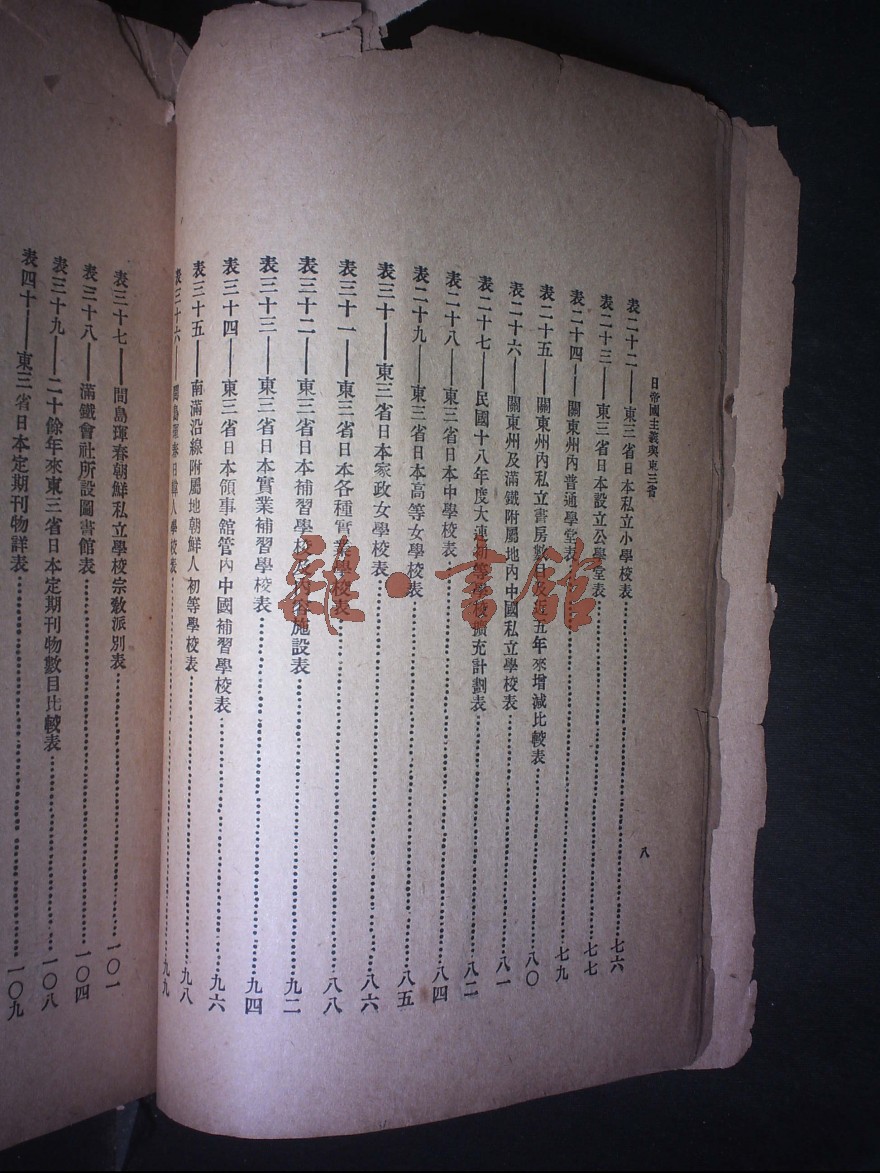 日帝國主義與東三省
八
表二十二——東三省日本私立小學校表……七六
表二十三——東三省日本設立公學堂表……七七
表二十四——關東州內普通學堂表……七九
表二十五——關東州內私立書房數目及近五年來增減比較表……八〇
表二十六——關東州及滿鐵附屬地內中國私立學校表……八一
表二十七——民國十八年度大連初等學校擴充計劃表……八二
表二十八——東三省日本中學校表……八四
表二十九——東三省日本高等女學校表……八五
表三十——東三省日本家政女學校表……八六
表三十一——東三省日本各種實業學校表……八八
表三十二——東三省日本補習學校及內容施設表……九二
表三十三——東三省日本實業補習學校表……九四
表三十四——東三省日本領事館管內中國補習學校表……九六
表三十五——南滿沿線附屬地朝鮮人初等學校表……九八
表三十六——間島琿春 人學校表……九九
表三十七——間島琿春朝鮮私立學校宗敎派別表……一〇一
表三十八——滿鐵會社所設圖書館表……一〇四
表三十九——二十餘年來東三省日本定期刊物數目比較表……一〇八
表四十——東三省日本定期刊物詳表……一〇九
雜·書館